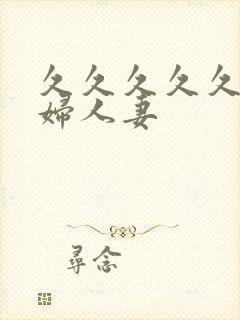 久久久久久
婦人妻
尋念